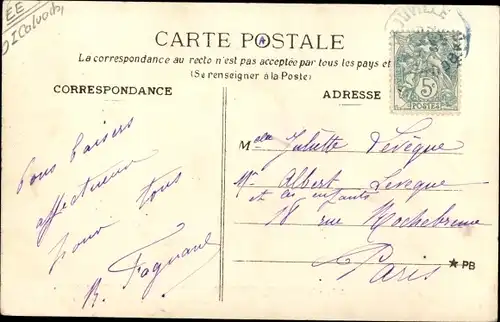 EE
CARTE POSTALE
La correspondance au recto n'est pas acceptée par tous les pays et
(Se renseigner à la Poste)
CORRESPONDANCE
ADRESSE
5c
POSTES
Bons baisers
affectueux
pour tous
R. Fagnard
Juliette Levêque
Mr Albert Leveque
et les enfants
18 rue Rochebrune
Paris
★ PB